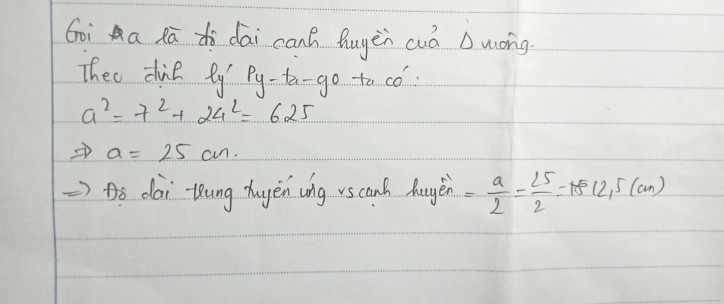 Gọi a là độ dài cạnh huyền của Δ vuông.
Theo định lý Py-ta-go ta có:
a² = 7² + 24² = 625
⇒ a = 25 cm.
⇒ Độ dài trung tuyến ứng vs cạnh huyền = a/2 = 25/2 = 12,5 (cm)